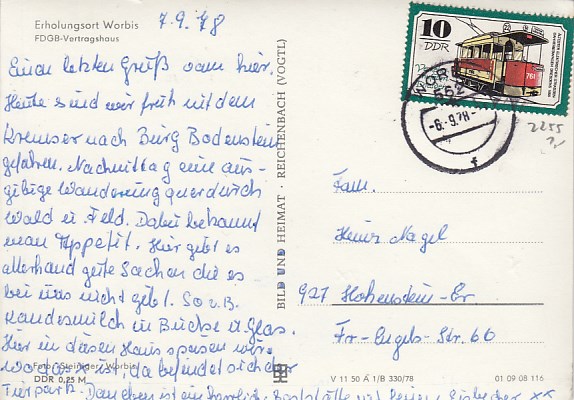 Erholungsort Worbis
FDGB-Vertragshaus
7.9.78
Einen letzten Gruß vom hier.
Heute sind wir früh mit dem
Kremser nach Burg Bodenstein
gefahren. Nachmittag eine aus-
giebige Wanderung quer durch
Wald u. Feld. Dabei bekommt
man Appetit. Hier gibt es
allerhand gute Sachen die es
bei uns nicht gibt. So z.B.
Kondesmilch in Büchse u. Glas.
Hier in diesen Haus speisen wir.
wo das x ist, da befindet sich der
Tierpark. Daneben ist ein herrlich
Foto: Steininger, Worbis
DDR 0,25 M
BILD UND HEIMAT · REICHENBACH (VOGTL)
V 11 50 A 1/B 330/78
01 09 08 116
10
DDR
761
-6.-9.78-
f
2255
Fam.
Heinz Nagel
927 Hohenstein-Er
Fr-Engels-Str. 60